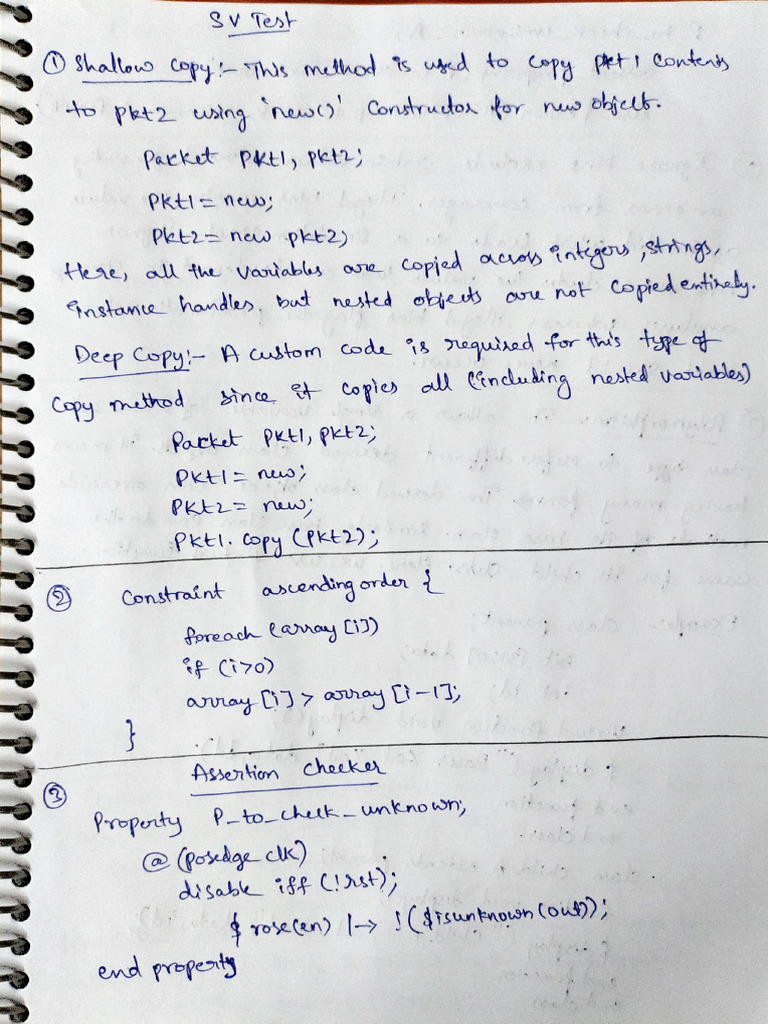 SV Test
① Shallow copy:- This method is used to copy pkt1 contents
to pkt2 using 'new()' constructor for new object.
Packet pkt1, pkt2;
pkt1 = new;
pkt2 = new pkt2;
Here, all the variables are copied across integers, strings,
instance handles, but nested objects are not copied entirely.
Deep Copy:- A custom code is required for this type of
copy method since it copies all (including nested variables)
Packet pkt1, pkt2;
pkt1 = new;
pkt2 = new;
pkt1.copy (pkt2);
② Constraint ascending order {
foreach (array [i])
if (i>0)
array [i] > array [i-1];
}
③ Assertion Checker
Property P_to_check_unknown;
@ (posedge clk)
disable iff (!rst);
$ rose(en) |-> !($isunknown(out));
end property